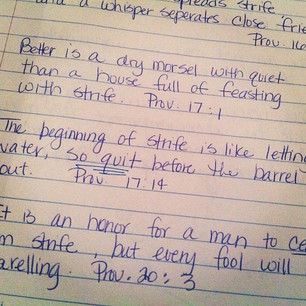 spreads strife
and a whisper seperates close frie
Prov. 16
Better is a dry morsel with quiet
than a house full of feasting
with strife. Prov. 17:1
The beginning of strife is like lettin
water, so quit before the barrel
out. Prov 17:14
It is an honor for a man to ce
m strife, but every fool will
arelling. Prov. 20:3